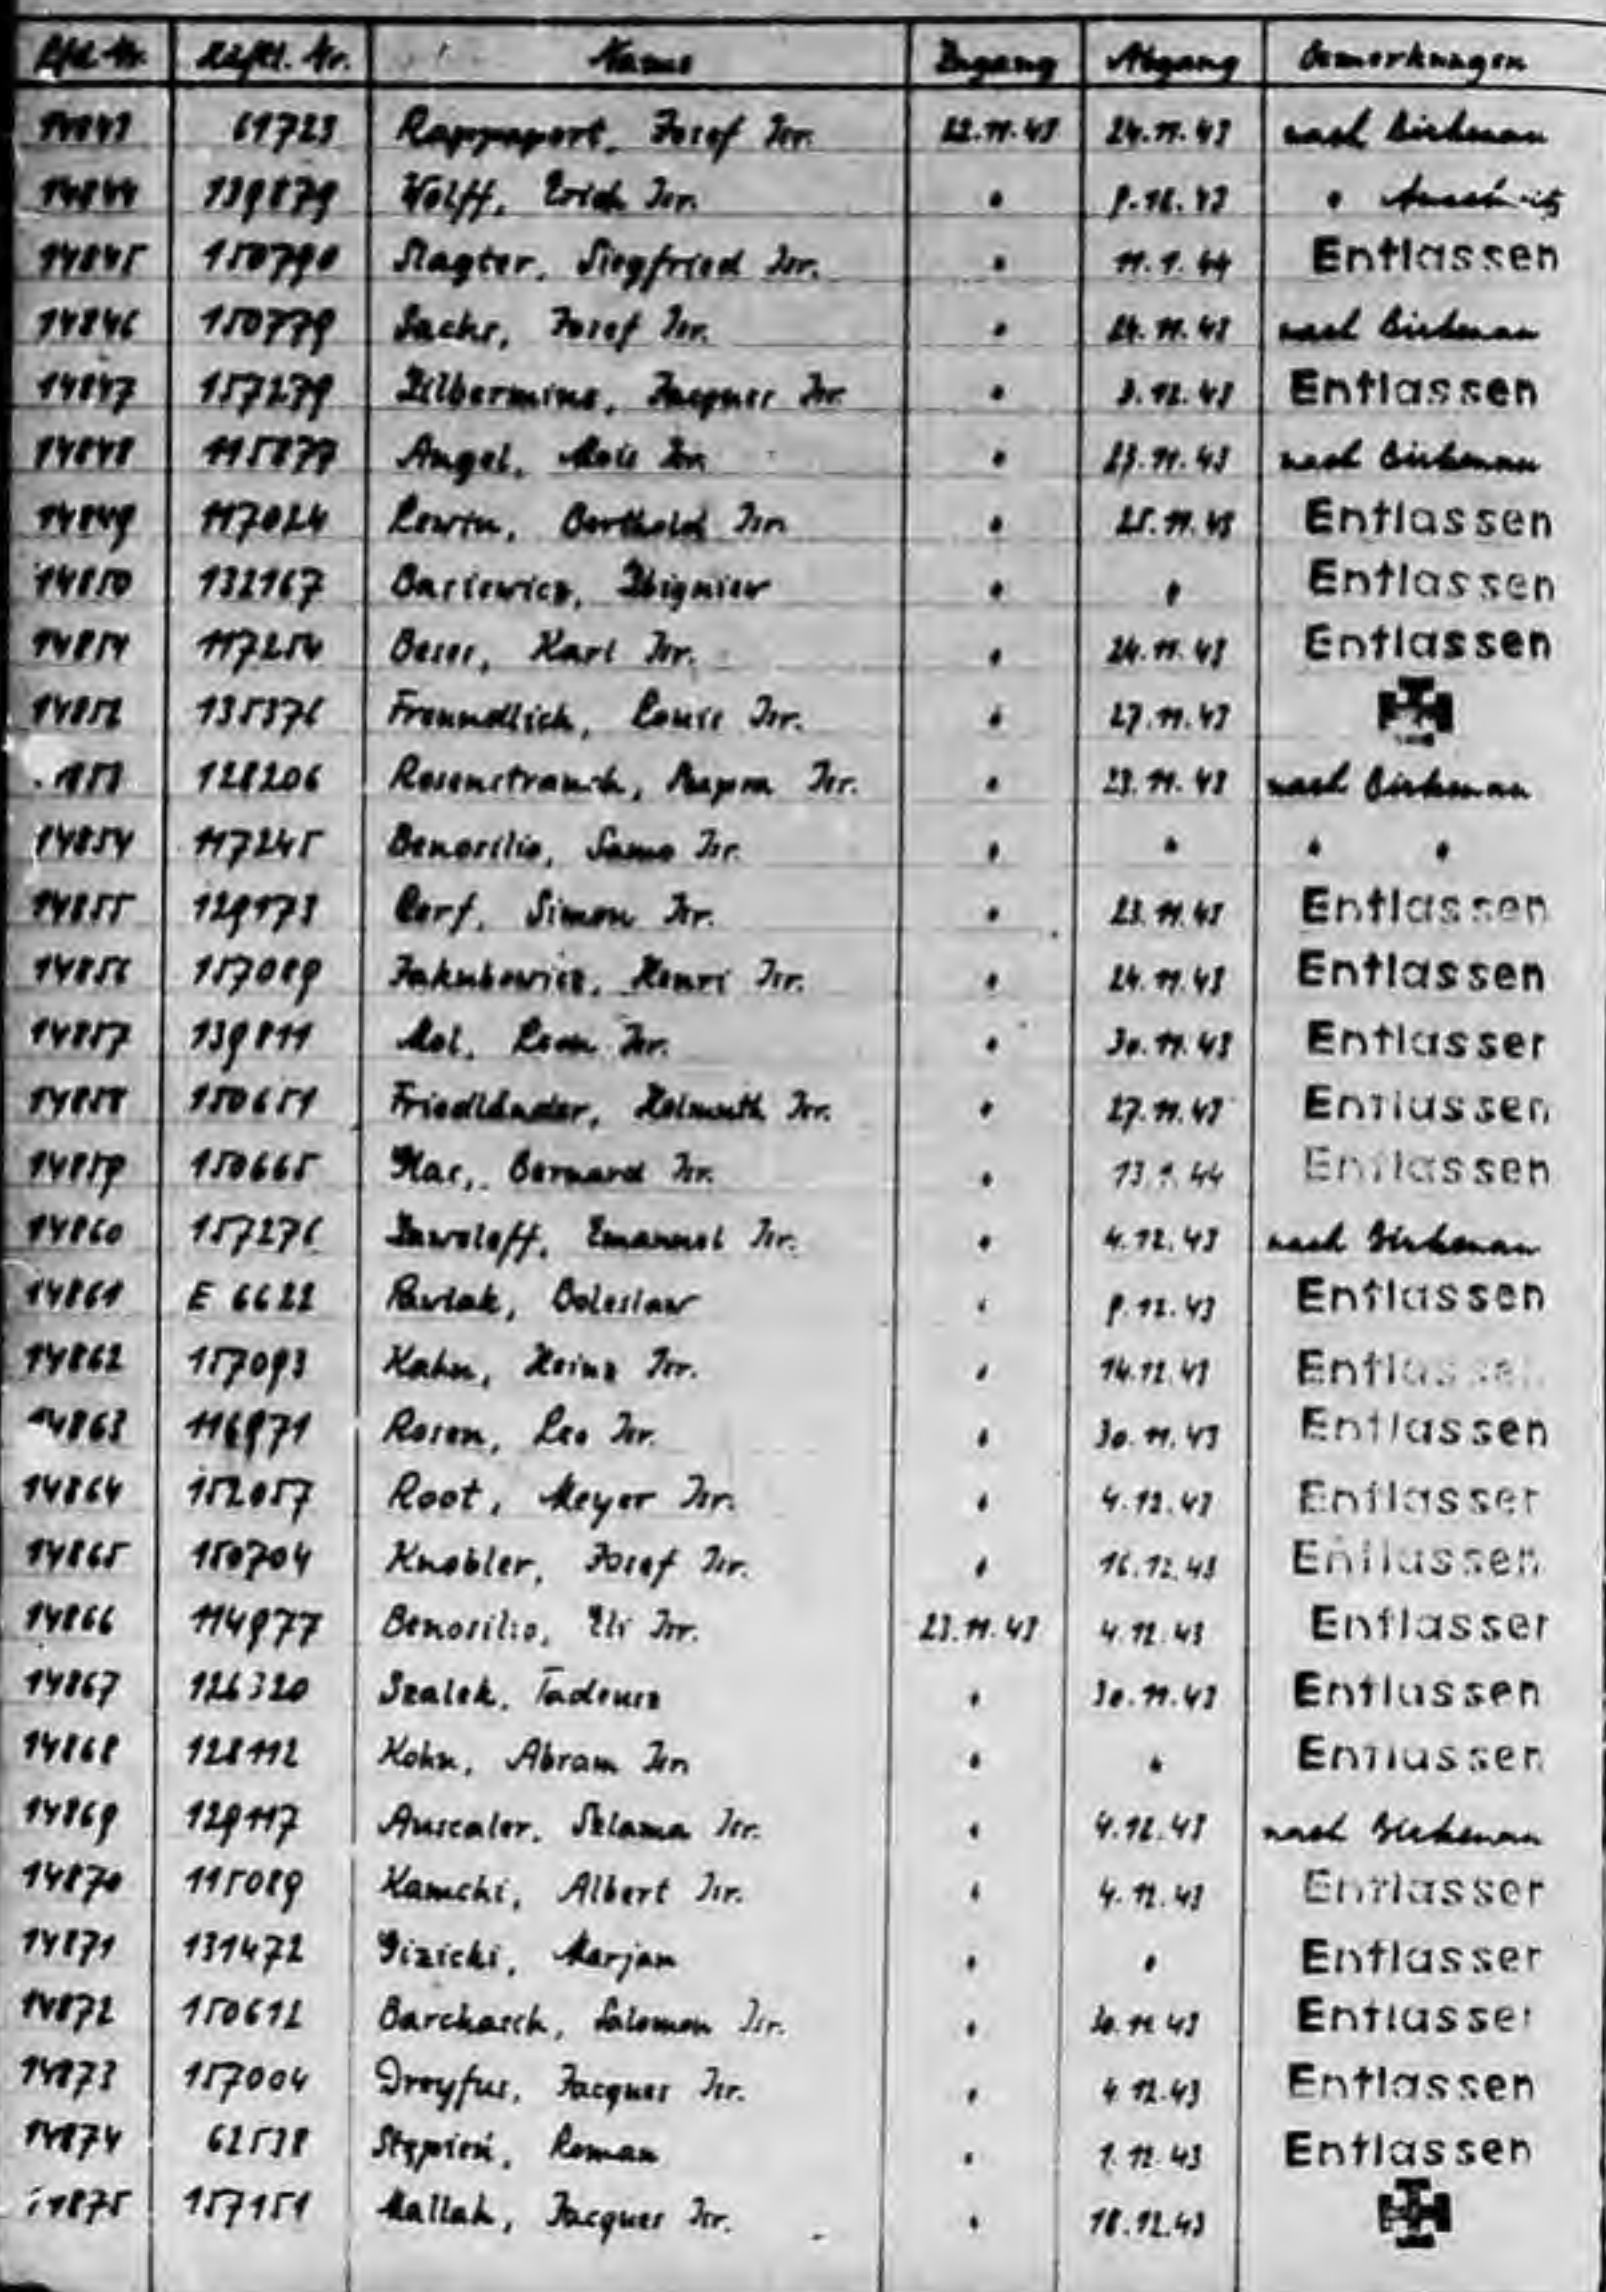 Lfd. Nr. Häftl. Nr. Name Zugang Abgang Bemerkungen
14843 61723 Rappaport, Josef Isr. 22.11.43 24.11.43 nach Birkenau
14844 139879 Wolff, Erich Isr. " 9.12.43 " Auschwitz
14845 150790 Slagter, Siegfried Isr. " 11.1.44 Entlassen
14846 150779 Sachs, Josef Isr. " 24.11.43 nach Birkenau
14847 157279 Zilbermine, Jacques Isr. " 3.12.43 Entlassen
14848 115877 Angel, Isr. " 23.11.43 nach Birkenau
14849 117024 Lewin, Berthold Isr. " 25.11.43 Entlassen
14850 132167 Zbigniew " " Entlassen
14851 117254 Karl Isr. " 24.11.43 Entlassen
14852 135376 Freundlich, Louis Isr. " 27.11.43
14853 128206 Rosenstrauch, Isr. " 23.11.43 nach Birkenau
14854 117245 Benosilio, Samo Isr. " " " "
14855 129173 Cerf, Simon Isr. " 23.11.43 Entlassen
14856 157089 Jakubowicz, Henri Isr. " 24.11.43 Entlassen
14857 139811 Mol, Leon Isr. " 30.11.43 Entlassen
14858 150651 Friedländer, Helmuth Isr. " 27.11.43 Entlassen
14859 150665 Bernard Isr. " 13.1.44 Entlassen
14860 157276 Emanuel Isr. " 4.12.43 nach Birkenau
14861 E 6622 Pawlak, Boleslaw " 9.12.43 Entlassen
14862 157093 Kahn, Heinz Isr. " 14.12.43 Entlassen
14863 116971 Rosen, Leo Isr. " 30.11.43 Entlassen
14864 152057 Root, Meyer Isr. " 4.12.43 Entlassen
14865 150704 Knobler, Josef Isr. " 16.12.43 Entlassen
14866 114977 Benosilio, Eli Isr. 23.11.43 4.12.43 Entlassen
14867 126320 Szalek, Tadeusz " 30.11.43 Entlassen
14868 128112 Kohn, Abram Isr. " " Entlassen
14869 129117 Anscaler, Szlama Isr. " 4.12.43 nach Birkenau
14870 115089 Kamchi, Albert Isr. " 4.12.43 Entlassen
14871 131472 Gizicki, Marjan " " Entlassen
14872 150612 Barchasch, Salomon Isr. " 30.11.43 Entlassen
14873 157004 Dreyfus, Jacques Isr. " 4.12.43 Entlassen
14874 62538 Stępień, Roman " 1.12.43 Entlassen
14875 157151 Mallah, Jacques Isr. " 18.12.43